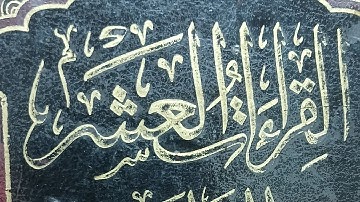 القراءات العشر